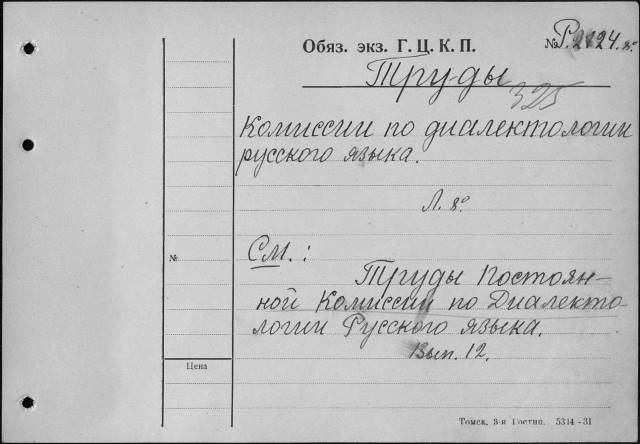 Обяз. экз. Г. Ц. К. П.
№ Р.2124.8º
Труды
325
Комиссии по диалектологии
русского языка.
Л. 8º
№
См.:
Труды Постоян-
ной Комиссии по Диалекто-
логии Русского языка.
Вып. 12.
Цена
Томск, 3-я Гостип. 5314-31